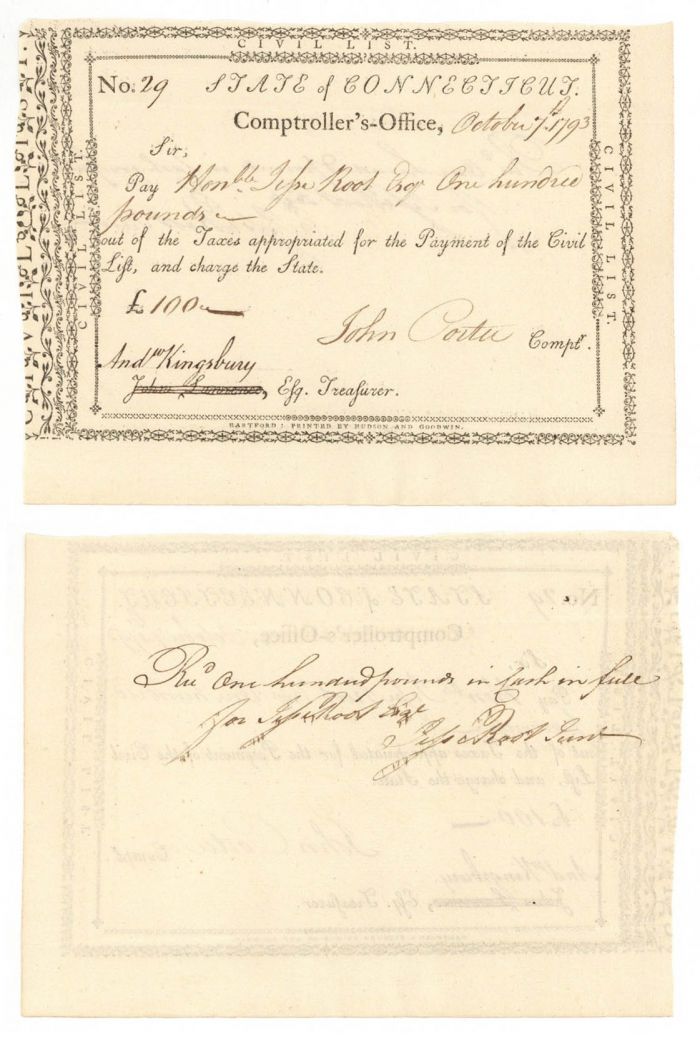 CIVIL LIST.
No. 29 STATE of CONNECTICUT.
Comptroller's-Office, October 7th 1793
Sir,
Pay Honble Jesse Root Esqr One hundred
pounds
out of the Taxes appropriated for the Payment of the Civil
List, and charge the State.
£100
John Porter Comptr.
Andw Kingsbury
John Lawrence, Esq. Treasurer.
HARTFORD: PRINTED BY HUDSON AND GOODWIN.
CIVIL LIST.
CIVIL LIST.
Recd One hundred pounds in Cash in full
for Jesse Root Esqr
Jesse Root Junr